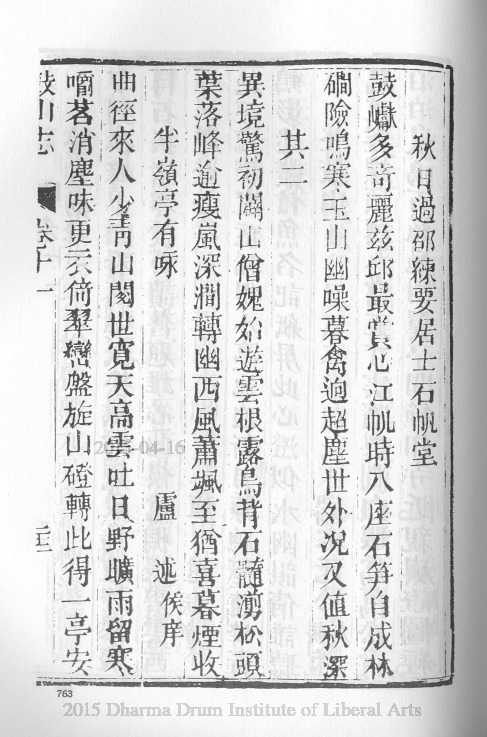 秋日過邵練要居士石帆堂
鼓巘多奇麗茲邱最賞心江帆時入座石笋自成林
磵險鳴寒玉山幽噪暮禽逈超塵世外况又值秋深
其二
異境驚初闢山僧媿始遊雲根露鳥背石髓溜松頭
葉落峰逾瘦嵐深澗轉幽西風蕭颯至猶喜暮煙收
半嶺亭有咏 盧 述 侯庠
曲徑來人少青山閱世寬天高雲吐日野曠雨留寒
嚼茗消塵味更衣倚翠巒盤旋山磴轉此得一亭安
鼓山志 卷十一
763
2015-04-16
2015 Dharma Drum Institute of Liberal Arts